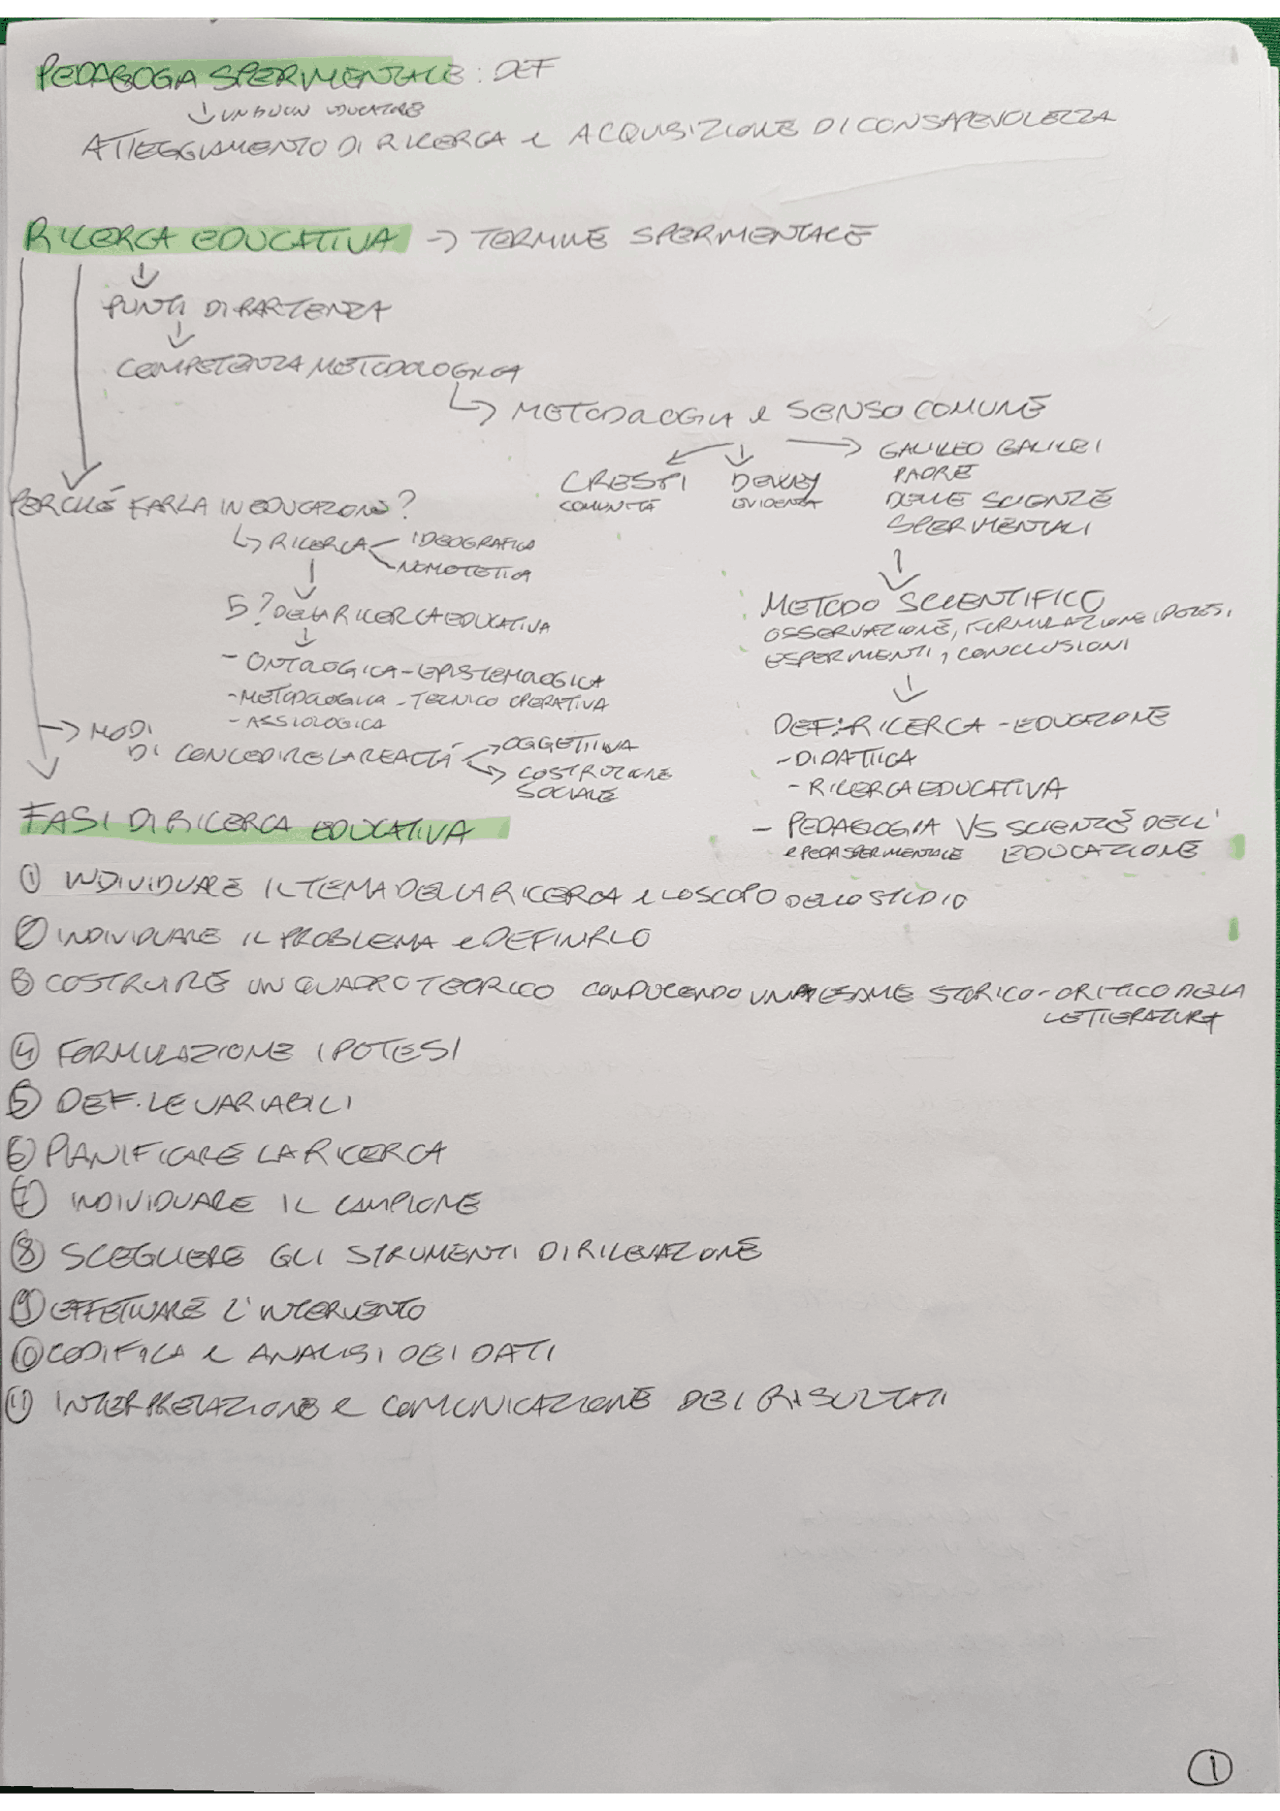 PEDAGOGIA SPERIMENTALE: DEF
↓ UN BUON EDUCATORE
ATTEGGIAMENTO DI RICERCA e ACQUISIZIONE DI CONSAPEVOLEZZA
RICERCA EDUCATIVA → TERMINE SPERIMENTALE
PUNTI DI PARTENZA
COMPETENZA METODOLOGICA
↳ METODOLOGIA e SENSO COMUNE
CRESPI
COMUNITÀ
DEWEY
EVIDENZA
GALILEO GALILEI
PADRE
DELLE SCIENZE
SPERIMENTALI
PERCHÉ FARLA IN EDUCAZIONE?
↳ RICERCA
IDEOGRAFICA
NOMOTETICA
5 ? DELLA RICERCA EDUCATIVA
- ONTOLOGICA - EPISTEMOLOGICA
- METODOLOGICA - TECNICO OPERATIVA
- ASSIOLOGICA
→ MODI
DI CONCEPIRE LA REALTÀ
OGGETTIVA
COSTRUZIONE
SOCIALE
METODO SCIENTIFICO
OSSERVAZIONE, FORMULAZIONE IPOTESI,
ESPERIMENTI, CONCLUSIONI
DEF: RICERCA - EDUCAZIONE
- DIDATTICA
- RICERCA EDUCATIVA
- PEDAGOGIA VS SCIENZE DELL'
e PEDA SPERIMENTALE EDUCAZIONE
FASI DI RICERCA EDUCATIVA
① INDIVIDUARE IL TEMA DELLA RICERCA e LO SCOPO DELLO STUDIO
② INDIVIDUARE IL PROBLEMA e DEFINIRLO
③ COSTRUIRE UN QUADRO TEORICO CONDUCENDO UN ESAME STORICO-CRITICO DELLA
LETTERATURA
④ FORMULAZIONE IPOTESI
⑤ DEF. LE VARIABILI
⑥ PIANIFICARE LA RICERCA
⑦ INDIVIDUARE IL CAMPIONE
⑧ SCEGLIERE GLI STRUMENTI DI RILEVAZIONE
⑨ EFFETTUARE L'INTERVENTO
⑩ CODIFICA e ANALISI DEI DATI
⑪ INTERPRETAZIONE e COMUNICAZIONE DEI RISULTATI
①